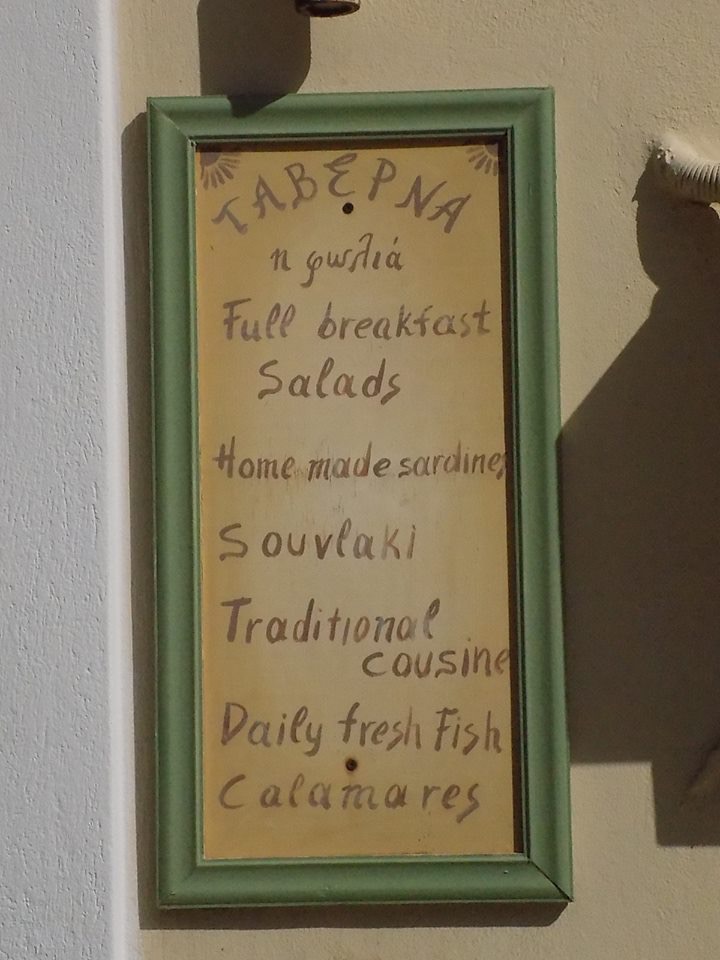 ΤΑΒΕΡΝΑ
η φωλιά
Full breakfast
Salads
Home made sardines
Souvlaki
Traditional
cousine
Daily fresh Fish
Calamares